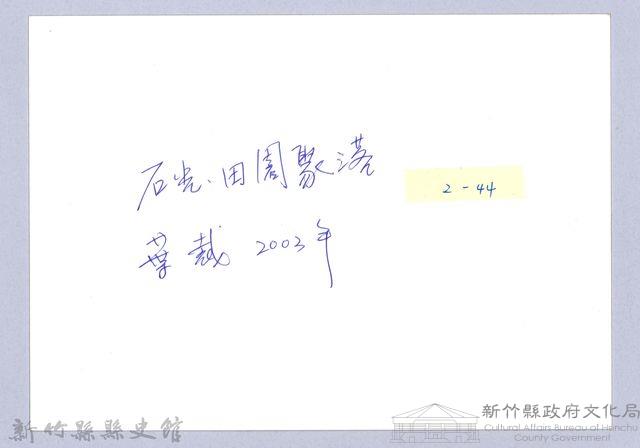 石光．田園聚落
2-44
葉裁 2003年
新竹縣縣史館
新竹縣政府文化局
Cultural Affairs Bureau of Hsinchu
County Government